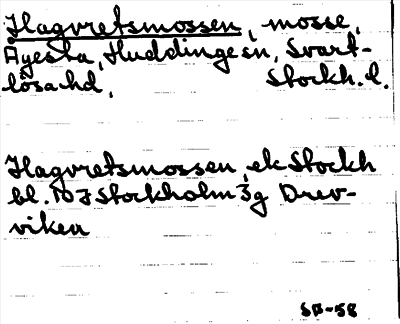 Hagvretsmossen, mosse,
Ågesta, Huddinge sn, Svart-
lösa hd, Stockh. l.
Hagvretsmossen, ek Stockh
bl. 10I Stockholm 3g Drev-
viken
SB-58